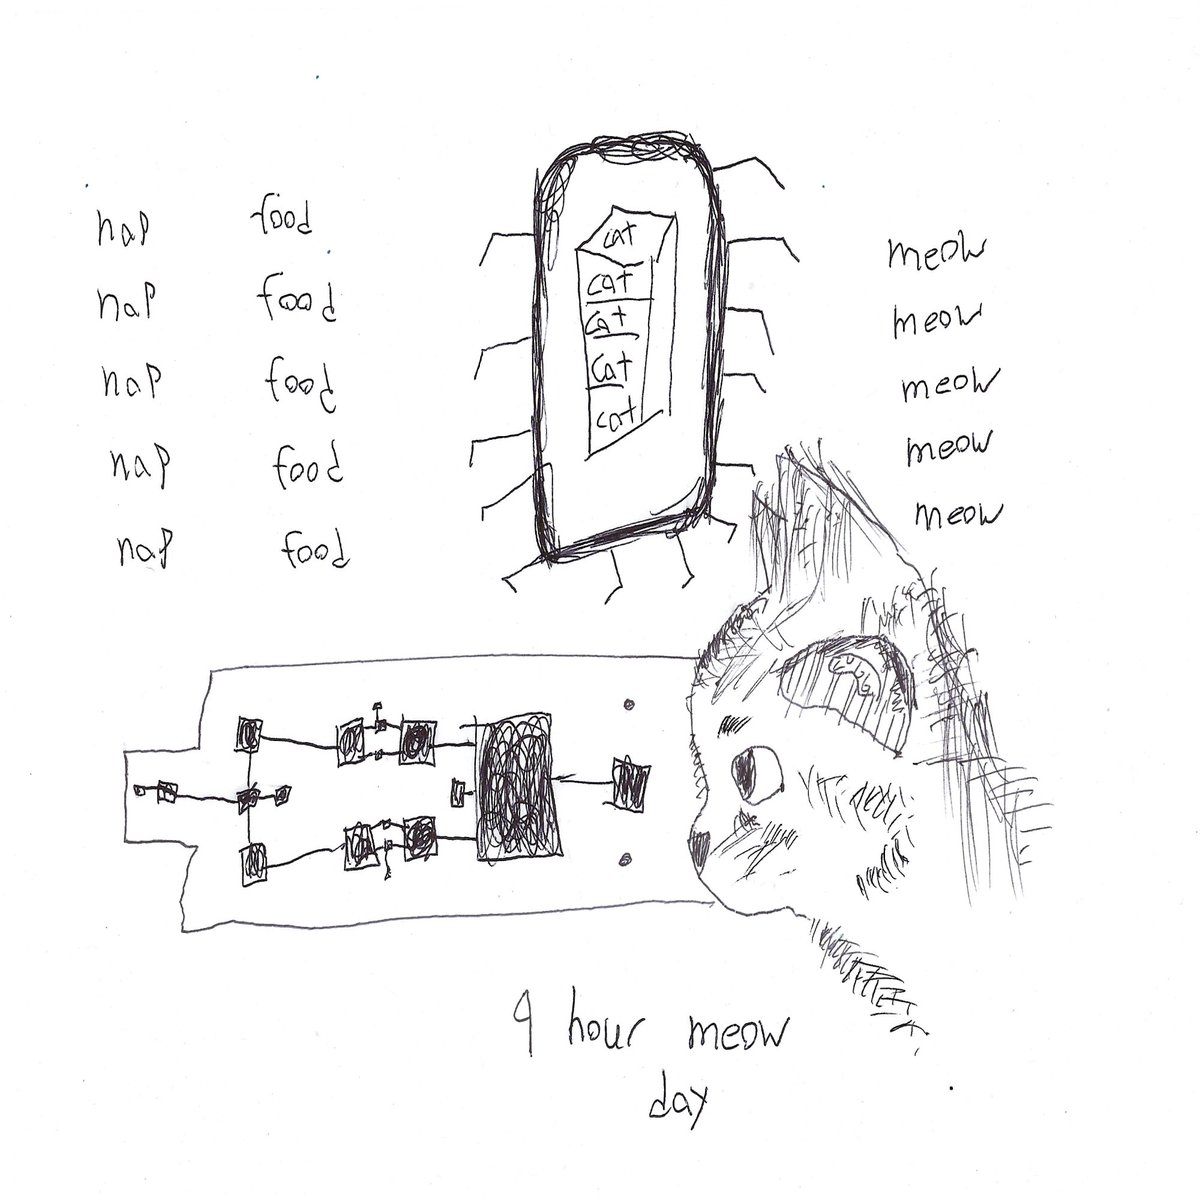 nap food
nap food
nap food
nap food
nap food
cat
cat
cat
cat
cat
meow
meow
meow
meow
meow
9 hour meow
day